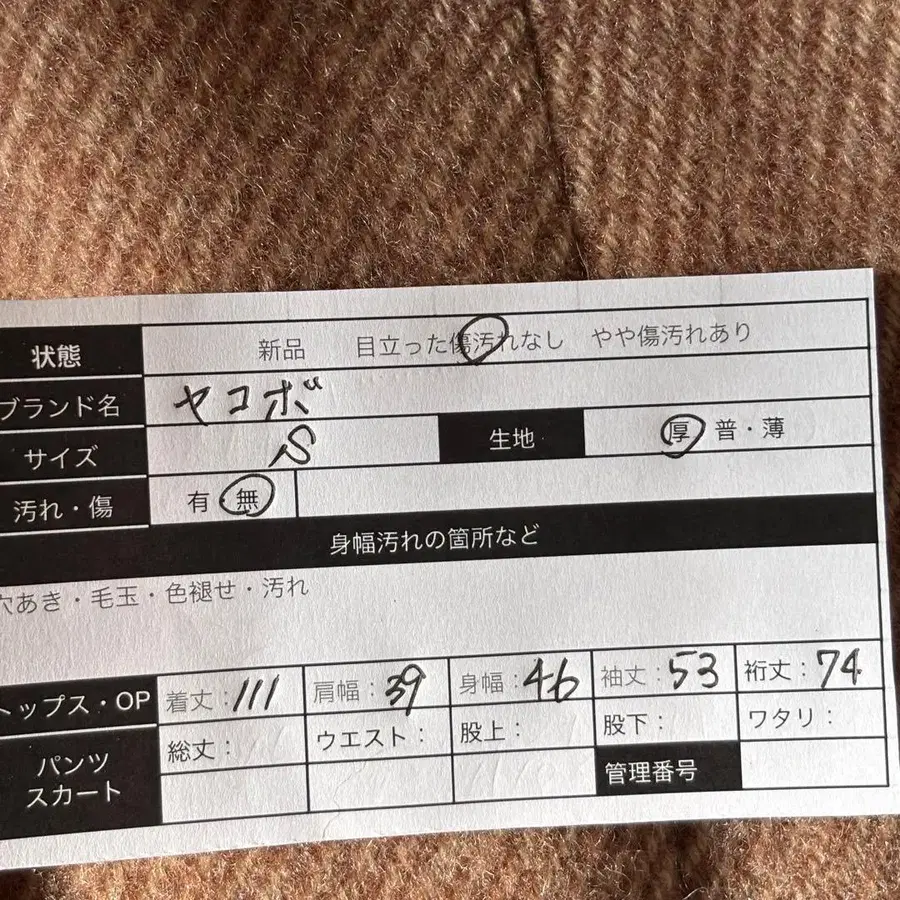 状態 新品 目立った傷汚れなし やや傷汚れあり
ブランド名 ヤコボ
サイズ S 生地 厚・普・薄
汚れ・傷 有・無
身幅汚れの箇所など
穴あき・毛玉・色褪せ・汚れ
トップス・OP 着丈:111 肩幅:39 身幅:46 袖丈:53 裄丈:74
パンツ スカート 総丈: ウエスト: 股上: 股下: ワタリ:
管理番号